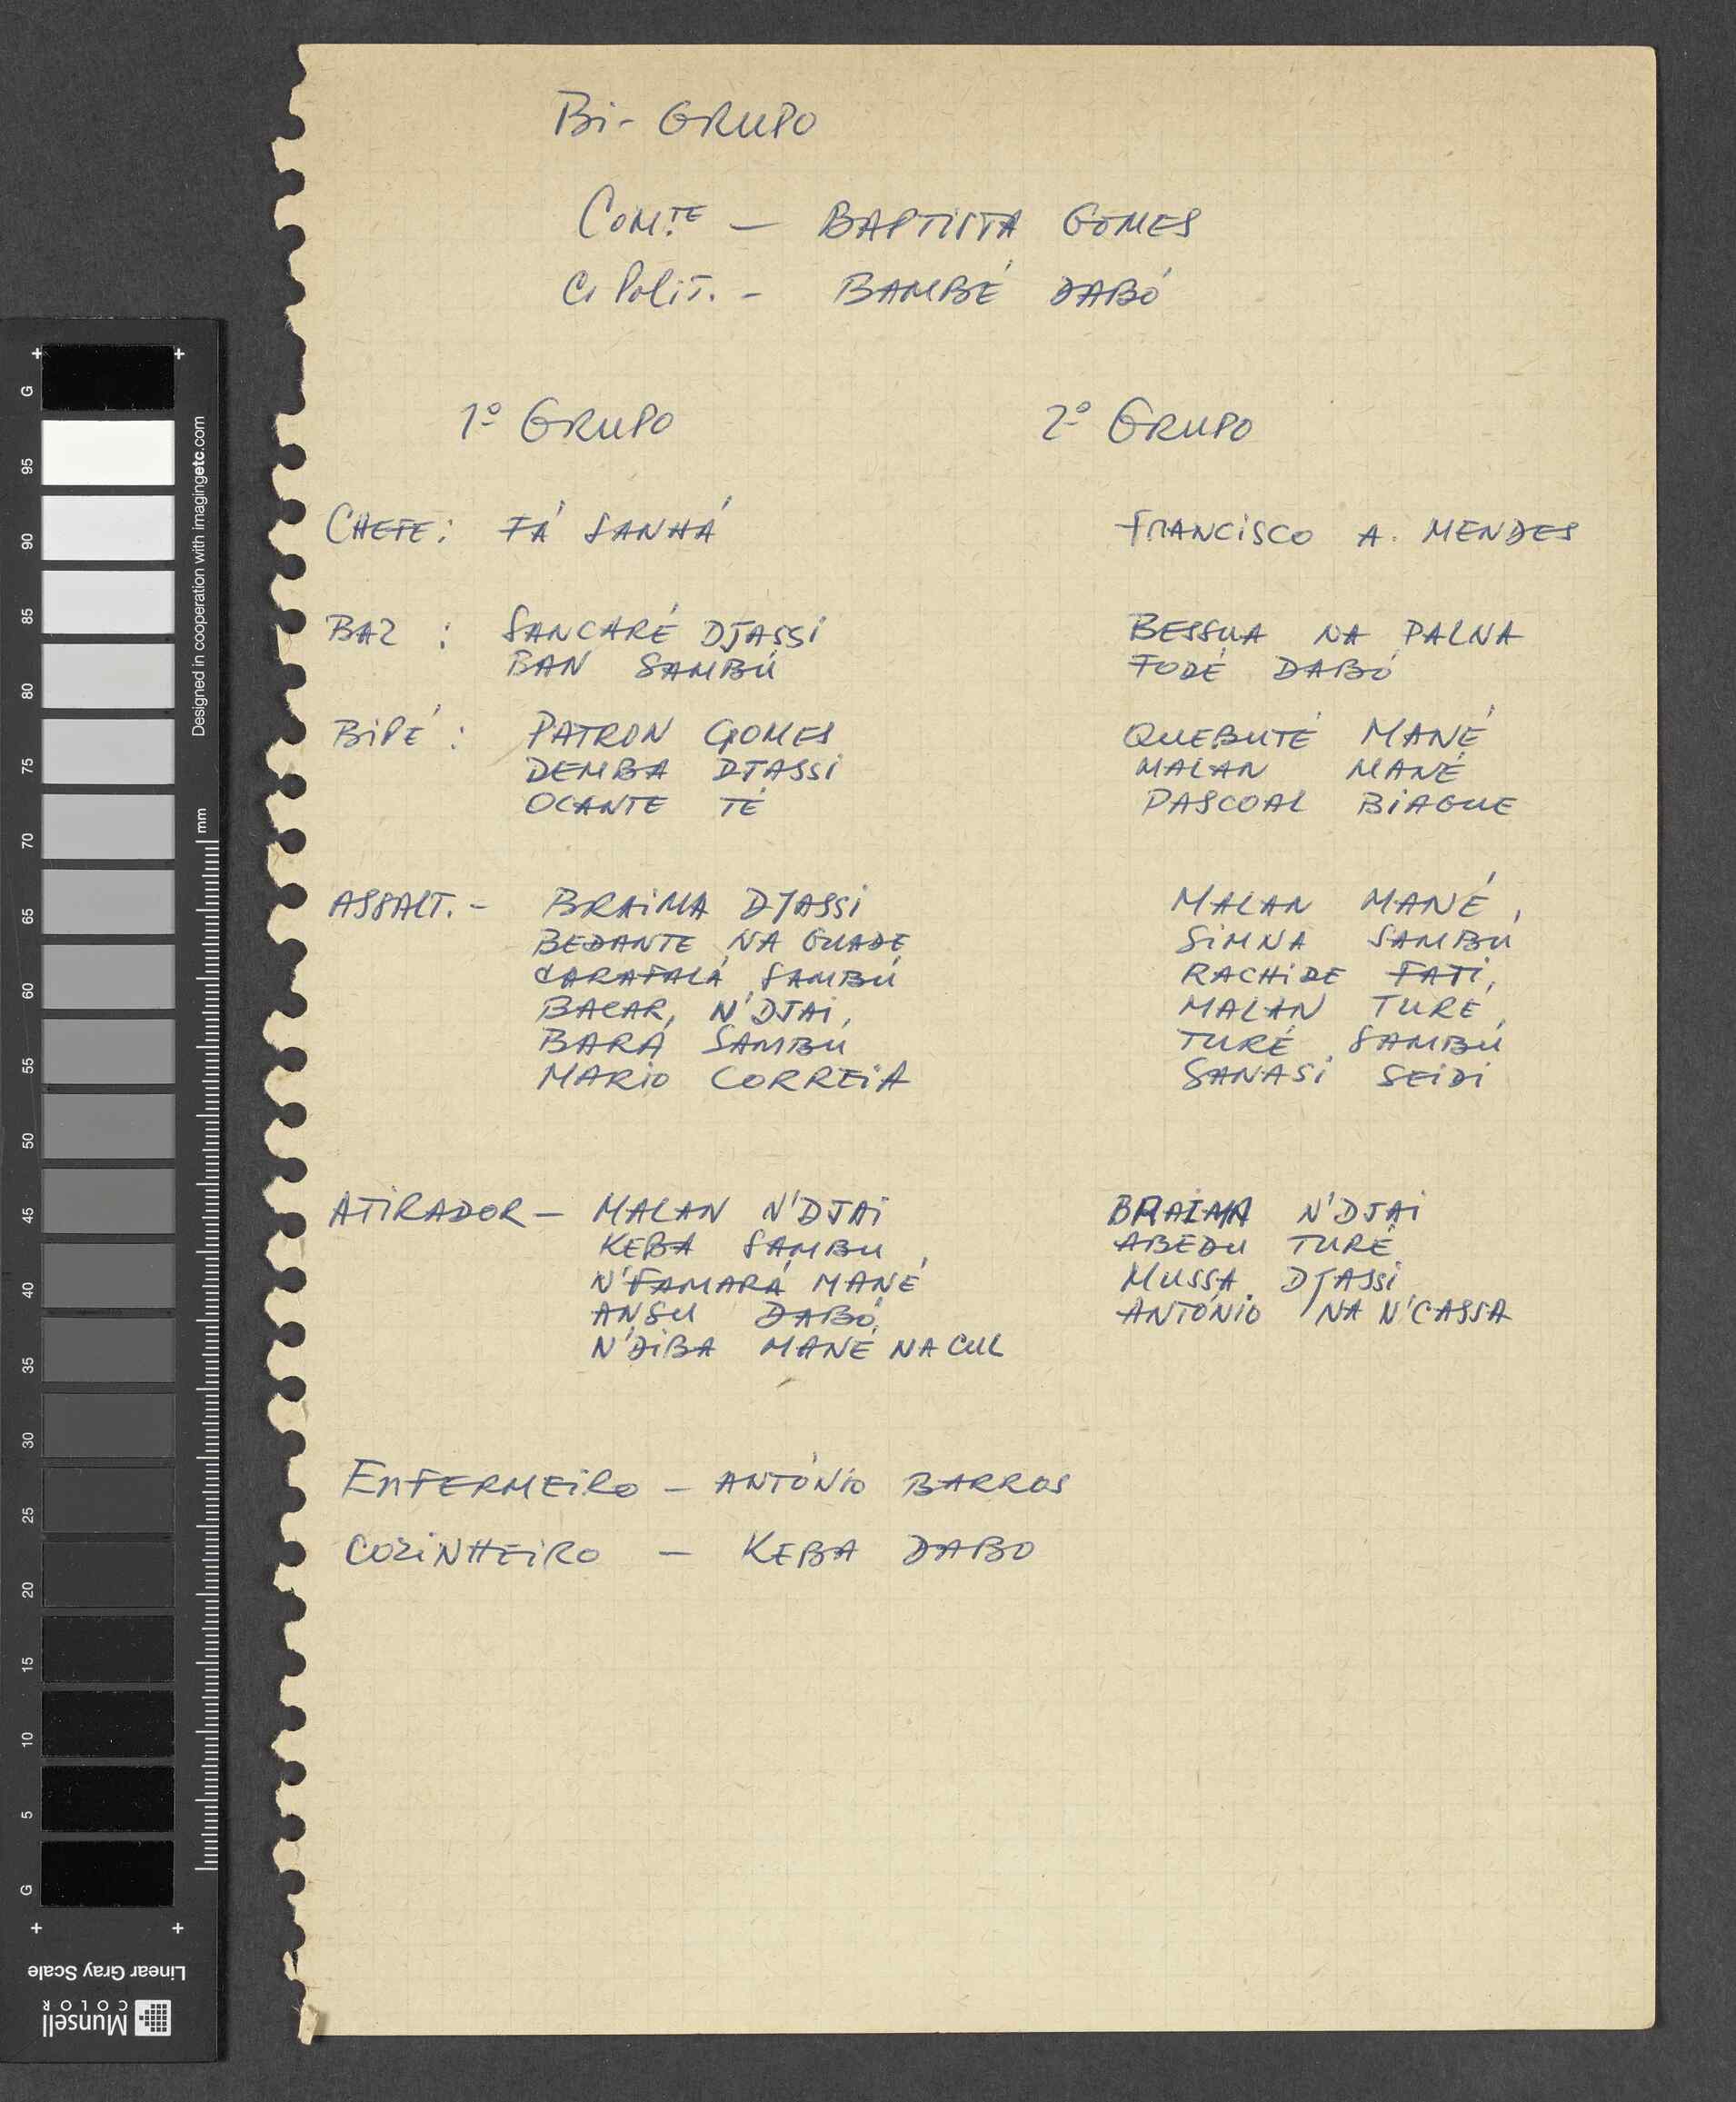 Bi- GRUPO
COM.TE — BAPTISTA GOMES
C. Polit. - BAMBÉ DABÓ
1º GRUPO 2º GRUPO
CHEFE: FÁ SANHÁ FRANCISCO A. MENDES
BAZ : SANCARÉ DJASSI BESSUA NA PALNA
BAN SAMBÚ FODÉ DABÓ
BIPÉ : PATRON GOMES QUEBUTÉ MANÉ
DEMBA DJASSI MALAN MANÉ
OCANTE TÉ PASCOAL BIAGUE
ASSALT. - BRAIMA DJASSI MALAN MANÉ
BEDANTE NA GUADE SIMNA SAMBÚ
CARAFALÁ SAMBÚ RACHIDE FATI
BACAR N'DJAI MALAN TURÉ
BARÁ SAMBU TURÉ SAMBÚ
MARIO CORREIA SANASI SEIDI
ATIRADOR — MALAN N'DJAI BRAIMA N'DJAI
KEBA SAMBU ABEDU TURÉ
N'FAMARÁ MANÉ MUSSA DJASSI
ANSU DABÓ ANTÓNIO NA N'CASSA
N'DIBA MANÉ NA CUL
ENFERMEIRO — ANTÓNIO BARROS
COZINHEIRO — KEBA DABO
G 95 90 85 80 75 70 65 60 55 50 45 40 35 30 25 20 15 10 5 G
mm
Designed in cooperation with imagingetc.com
Linear Gray Scale
Munsell
COLOR